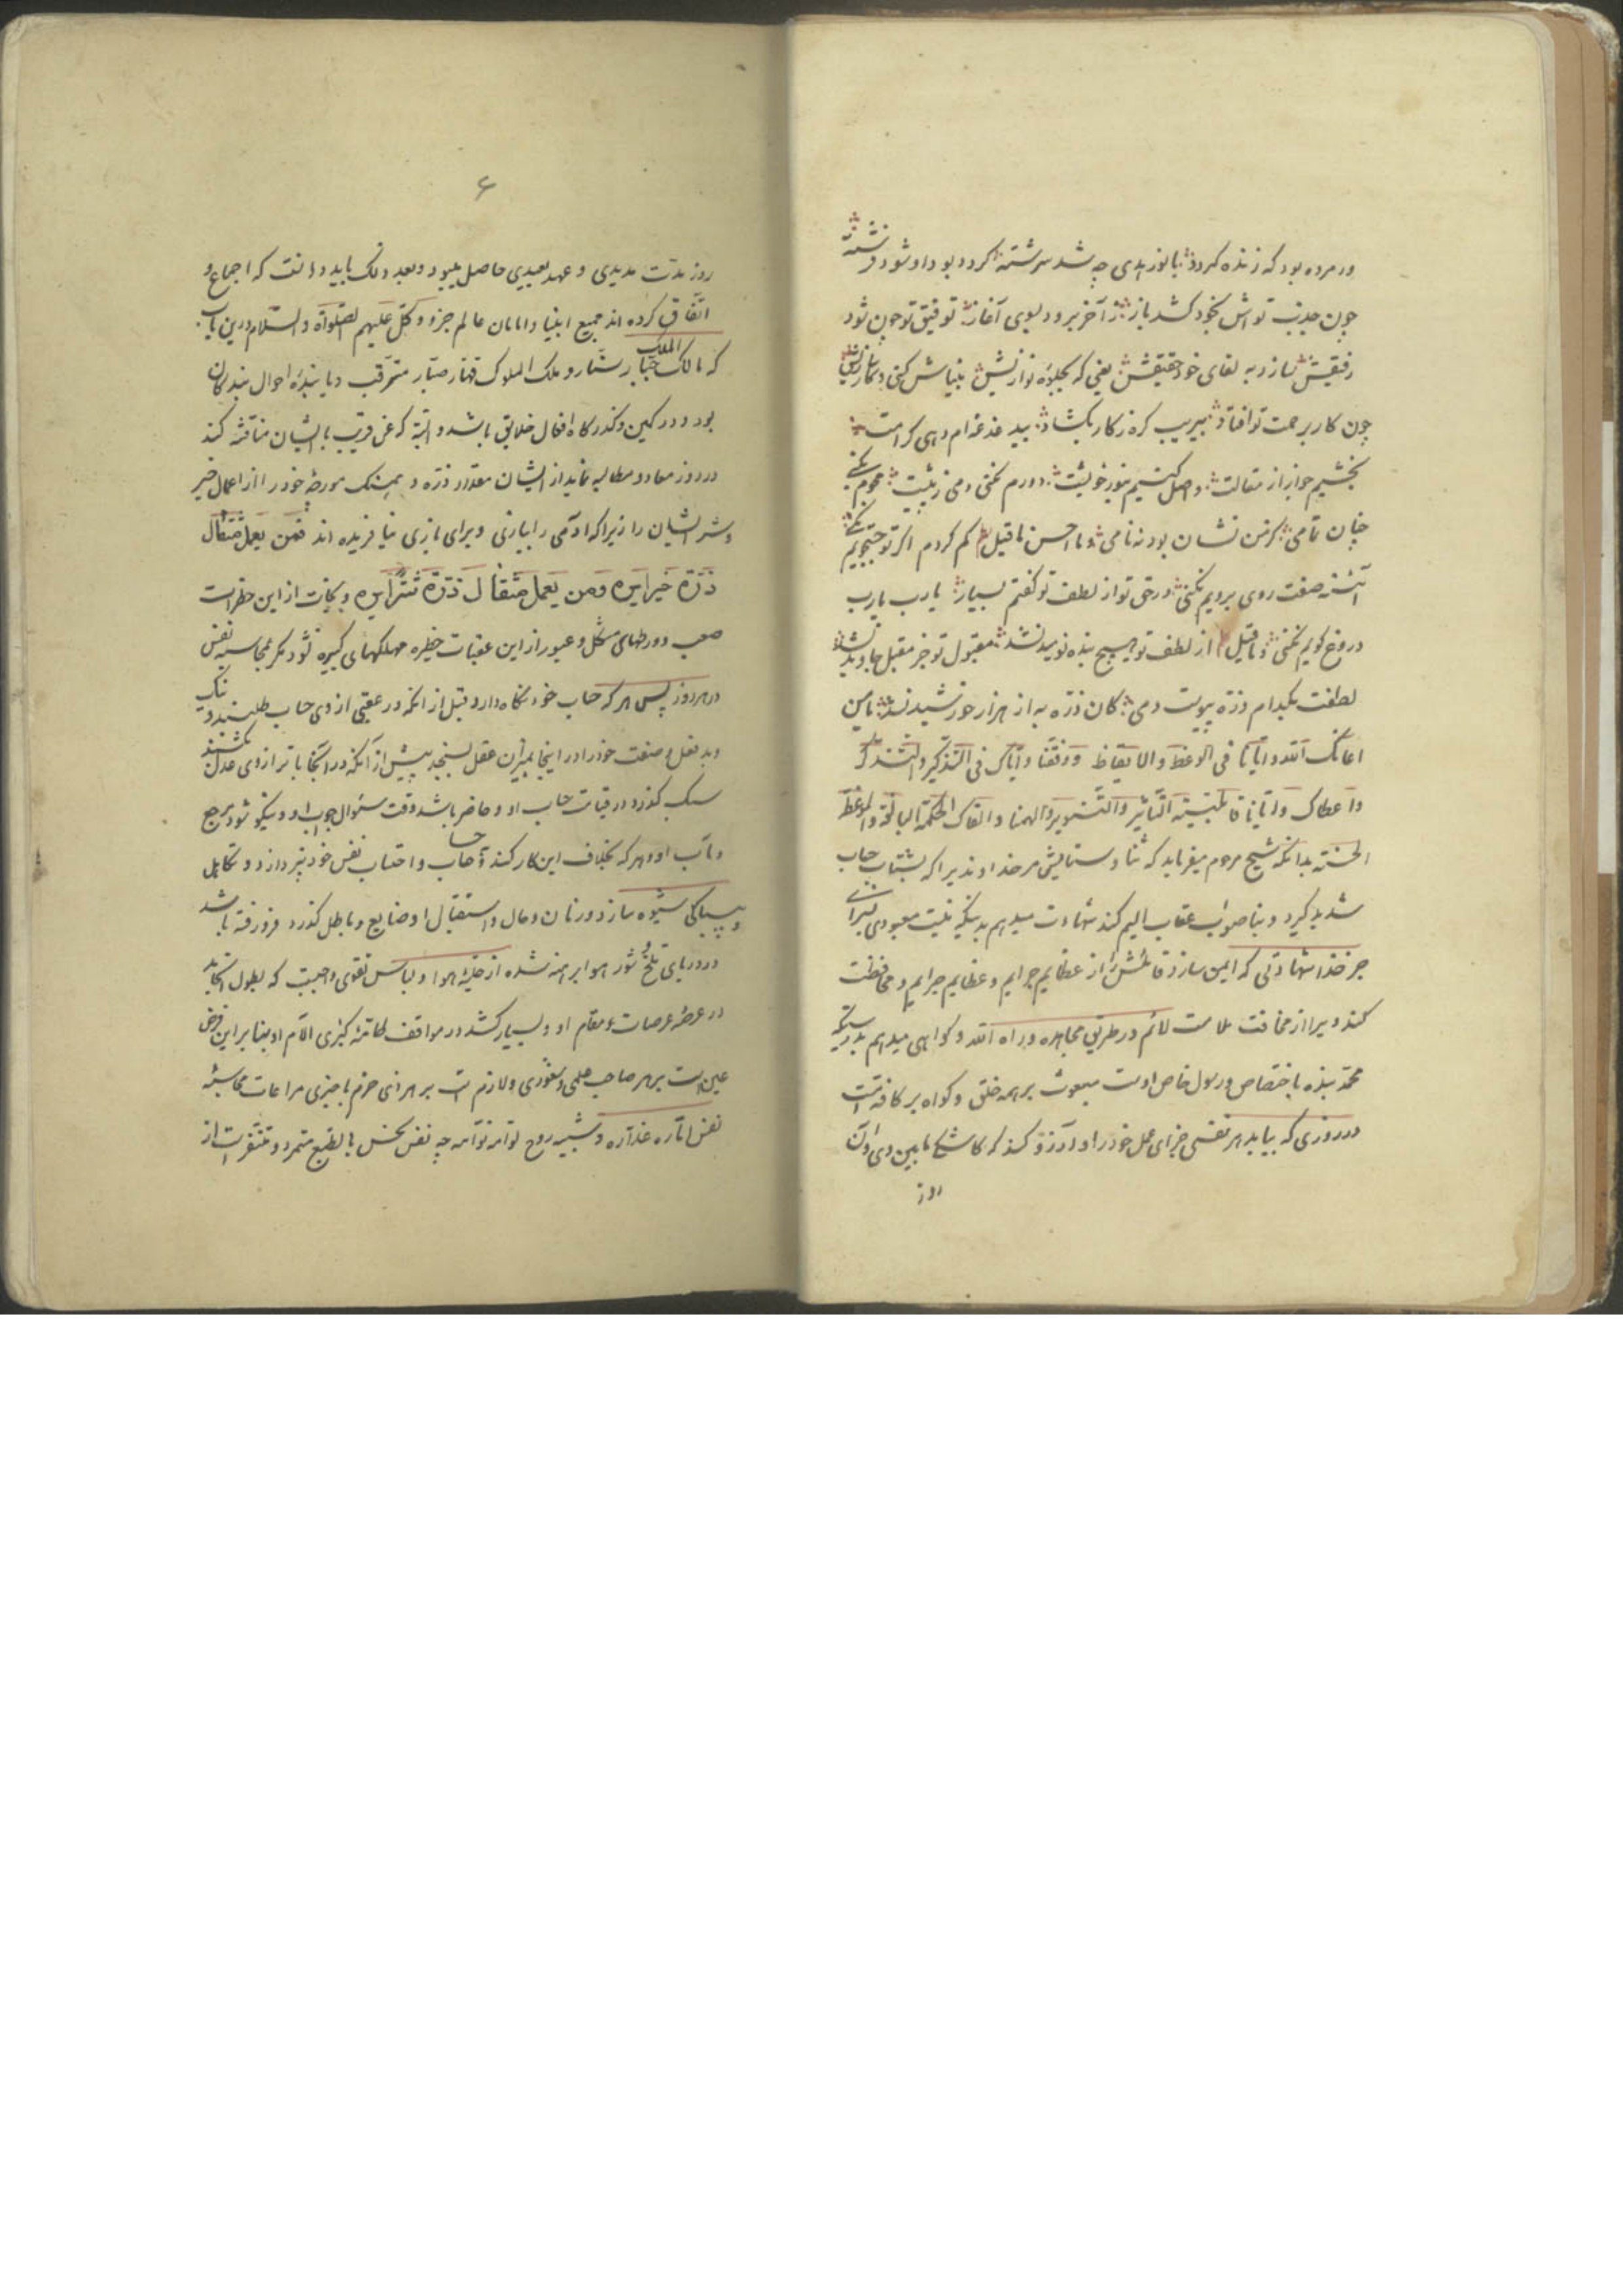 ور مرده بود که زنده کردد با نور بدی چه شد سرشته کردد بود او شود فرشته
چون جذبت تواش بخود کشد باز ز آخر برود بسوی آغاز توفیق تو چون شود
رفیقش سازد به لقای خود حقیقش یعنی که بجلوه نوازنش
چون کار برحمت تو افتاد بی‌ریب کره زکار بکشاد
بخشیم جواز از مقالت واصل کنیم بنور خویت دورم نکنی دمی ز پیت محروم نکنی
چنان نامی کز من نشان بود نه نامی و ما احسن ما قیل کم کردم اکر تو جستجویم نکنی
آئنه صفت روی برویم نکنی در حق تو از لطف تو کفتم بسیار یا رب یا رب
دروغ کویم نکنی و ما قیل از لطف تو هیچ بنده نومید نشد مقبول تو جز مقبل جاوید نشد
لطفت بکدام ذره پیوست دمی کان ذره به از هزار خورشید نشد
اعانک الله و ایانا فی الوعظ والایقاظ ووفقنا وایاک فی التذکیر والتشدید
واعطاک وایانا قابلیة التأثیر والتنویر والهمنا والقاک الحکمة البالغة والموعظة
الحسنة بدانکه شیخ مرحوم میفرماید که ثنا و ستایش مر خداوندیرا که بشتاب حساب
شدید کیرد و بنا صواب عقاب الیم کند شهادت میدهم بدینکه نیست معبودی بسزائی
جز خدا شهادتی که ایمن سازد قائلش را از عظایم جرایم و عظایم جرایم و محافظت
کند ویرا از مخافت ملامت لائم در طریق مجاهده و راه الله و کواهی میدهم بدرستیکه
محمد بنده باختصاص و رسول خاص اوست مبعوث بر همه خلق و کواه بر کافه امت
در روزی که بیابد هر نفسی جزای عمل خود را و آرزو کند که کاشکی ما بین وی و آن
روز
۶
روز مدت مدیدی و عهد بعیدی حاصل میبود و بعد ذلک باید دانست که اجماع و
اتفاق کرده اند جمیع انبیا و امامان عالم جزو و کل علیهم الصلواة والسلام درین باب
که مالک الملک جبار ستار و ملک الملوک قهار صبار مترقب و پایندهٔ احوال بندکان
بود و در کمین و کذرکاه افعال خلایق باشد و البته که عن قریب باایشان مناقشه کند
در روز معاد و مطالبه نماید از ایشان مقدار ذره و همسنک مورچهٔ خورد را از اعمال خیر
و شر ایشان را زیرا که آدمی را ببازی و برای بازی نیافریده اند فمن یعمل مثقال
ذرة خیرا یره ومن یعمل مثقال ذرة شرا یره و نجات از این خطرات
صعب و ورطهای مشکل و عبور از این عقبات خطیره مهلکهای کبیره نشود مکر بمحاسبه نفس
در هر روز پس هر که حساب خود نکاه دارد قبل از آنکه در عقبی از وی حساب طلبند و نیک
وبد فعل و صنعت خود را در اینجا بمیزان عقل بسنجد پیش از آنکه در آنجا با ترازوی عدل بکشند
سبک کذرد در قیامت حساب او و حاضر باشد وقت سئوال جواب او و نیکو شود مرجع
و مآب او و هر که بخلاف این کار کند و حساب و احتساب نفس خود نپردازد و تکاهل
و بیباکی شیوه سازد و زمان و حال و استقبال او ضایع و باطل کذرد فرو رفته باشد
در دریای تلخ و شور هوا برهنه شده از حلیهٔ هوا و لباس تقوی واجبست که بطول انجامد
در عرصهٔ عرصات مقام او و بسیار کشد در مواقف طامهٔ کبری آلام او بنا بر این فرض
عین است بر هر صاحب حلمی و شعوری و لازم است بر هر ذی حزم با خبری مراعات محاسبهٔ
نفس اماره غداره و شبیه روح لوامه نوامه چه نفس نحس بالطبع متمرد و متنفر است از